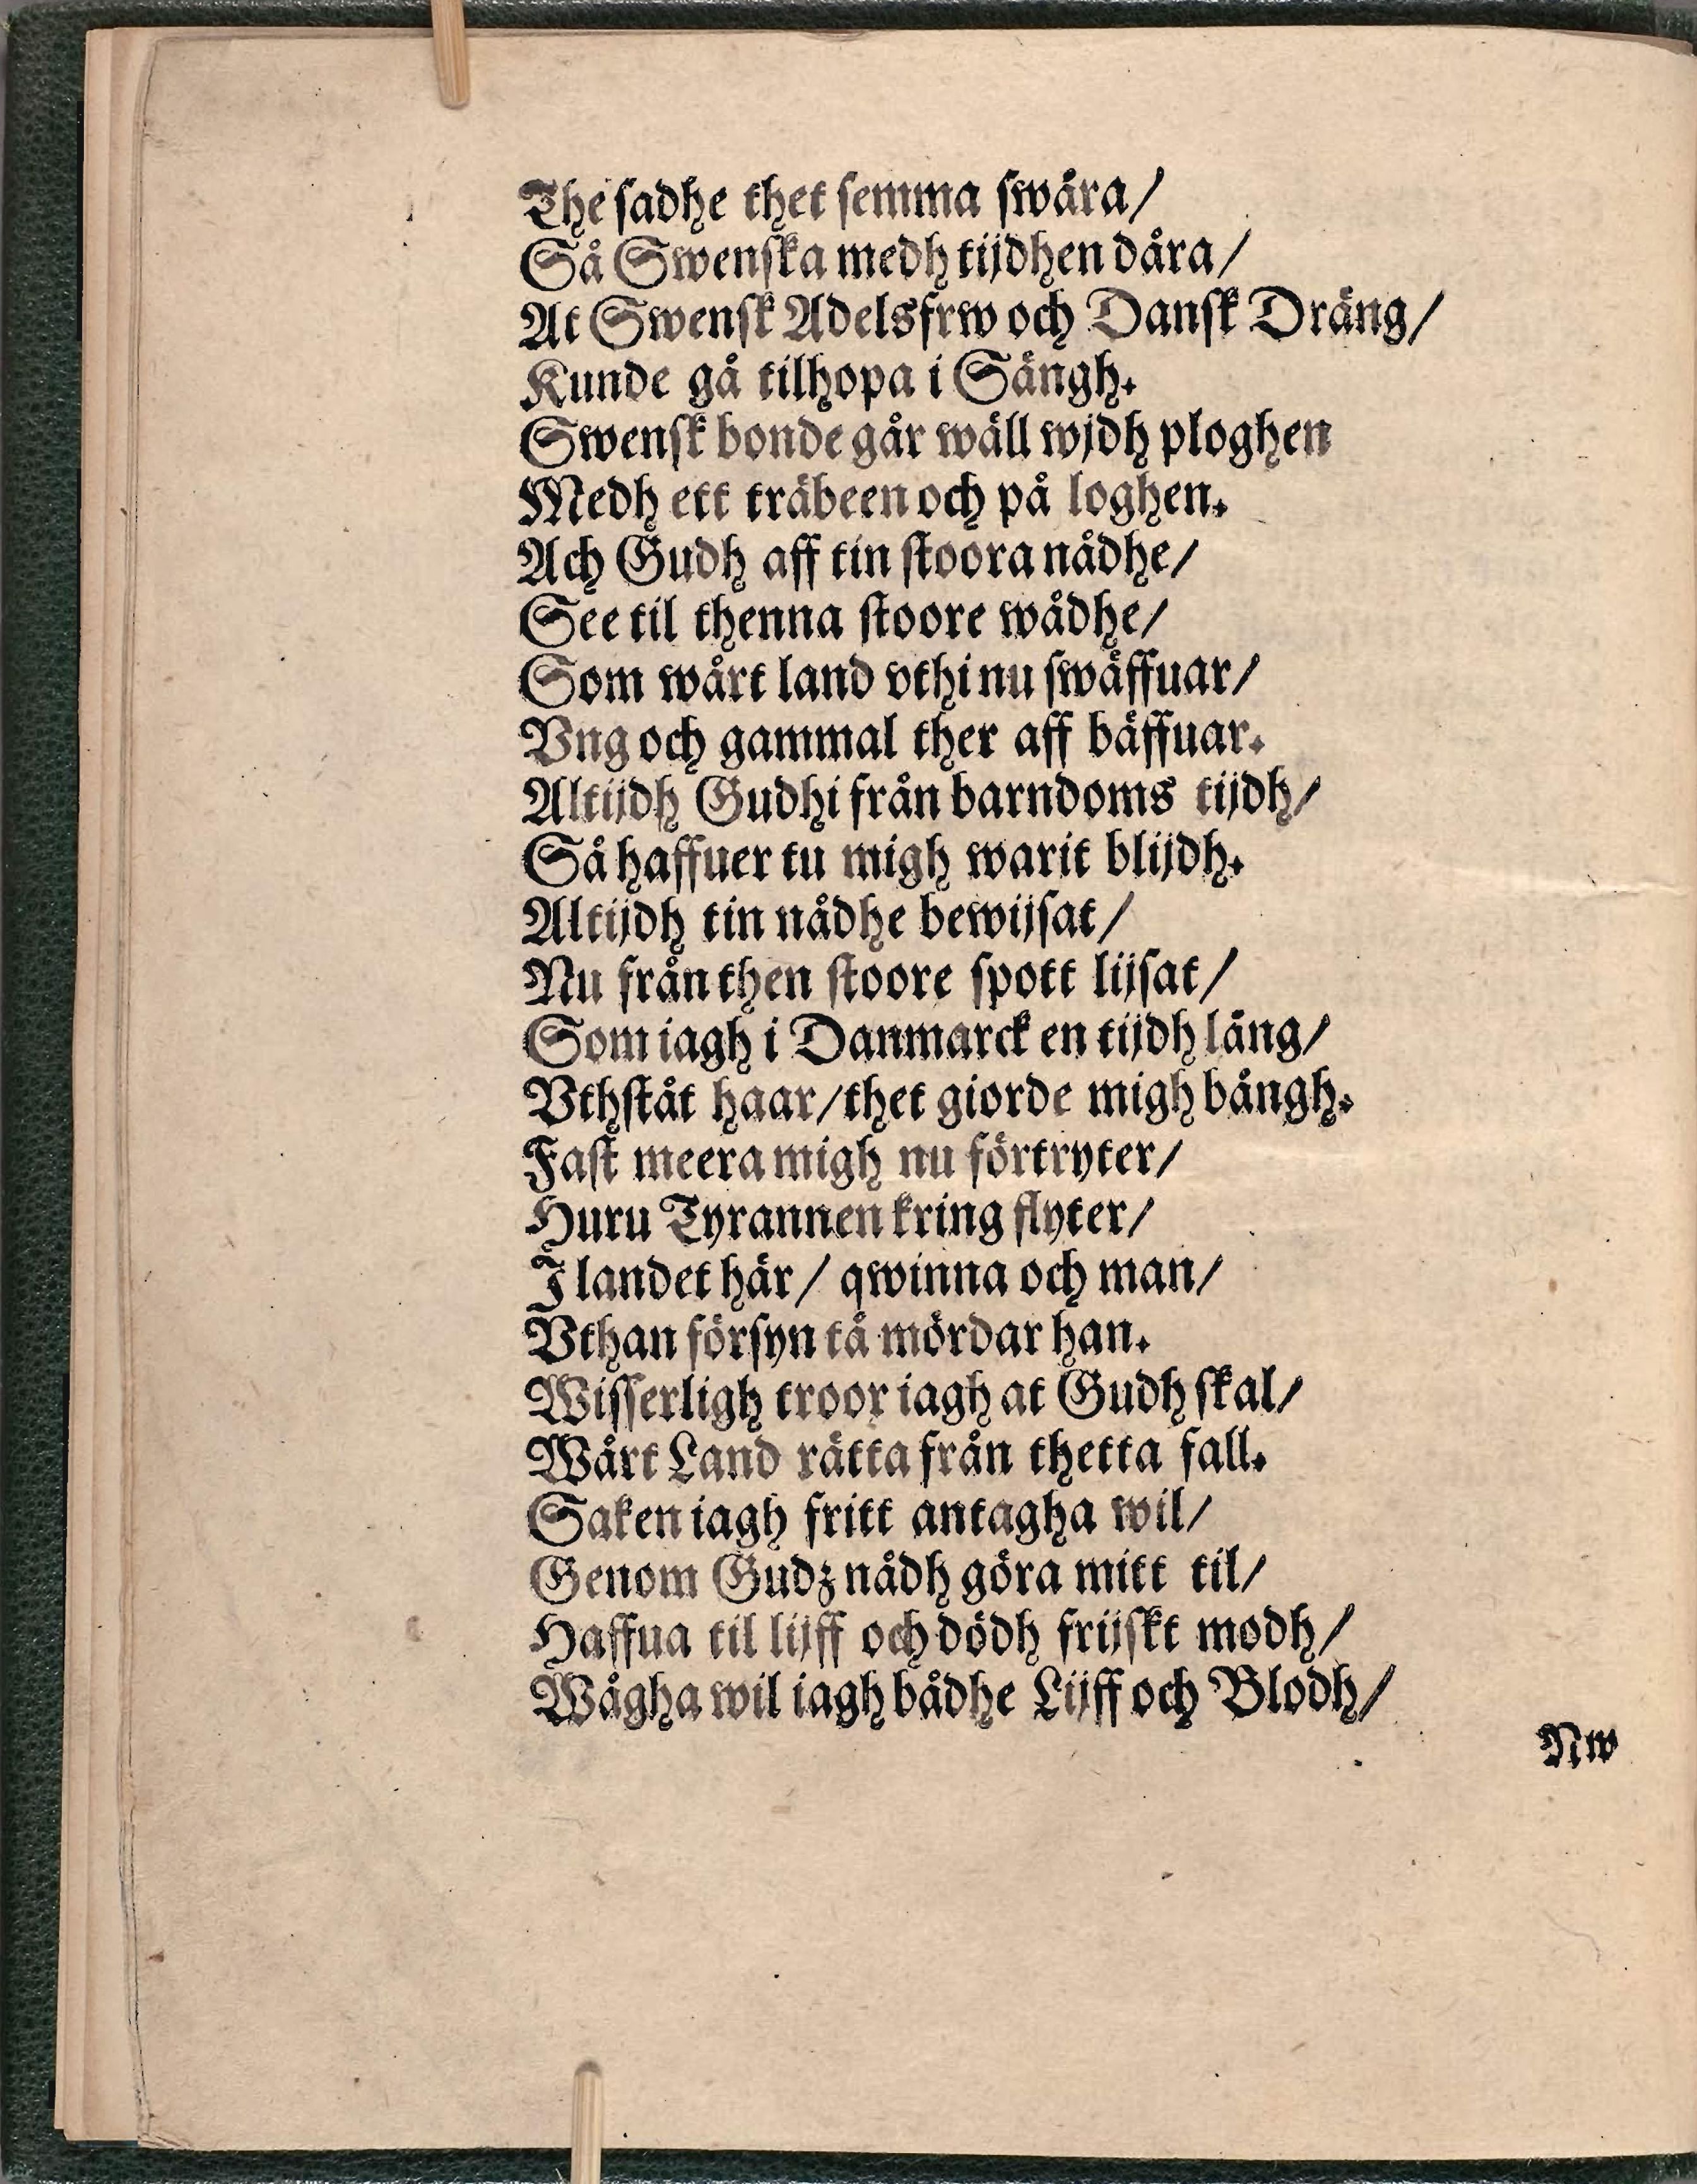 The sadhe thet semma swåra/
Så Swenska medh tijdhen dåra/
At Swensk Adelsfrw och Dansk Dräng/
Kunde gå tilhopa i Sängh.
Swensk bonde går wäll wjdh ploghen
Medh ett träbeen och på loghen.
Ach Gudh aff tin stoora nådhe/
See til thenna stoore wådhe/
Som wårt land vthi nu swäffuar/
Vng och gammal ther aff bäffuar.
Altijdh Gudh i från barndoms tijdh/
Så haffuer tu migh warit blijdh.
Altijdh tin nådhe bewijsat/
Nu från then stoore spott lijsat/
Som iagh i Danmarck en tijdh lång/
Vthståt haar/thet giorde migh bångh.
Fast meera migh nu förtryter/
Huru Tyrannen kring flyter/
I landet här/ qwinna och man/
Vthan försyn tå mördar han.
Wisserligh troor iagh at Gudh skal/
Wårt Land rätta från thetta fall.
Saken iagh fritt antagha wil/
Genom Gudz nådh göra mitt til/
Haffua til lijff och dödh frijskt modh/
Wågha wil iagh bådhe Lijff och Blodh/
Nw